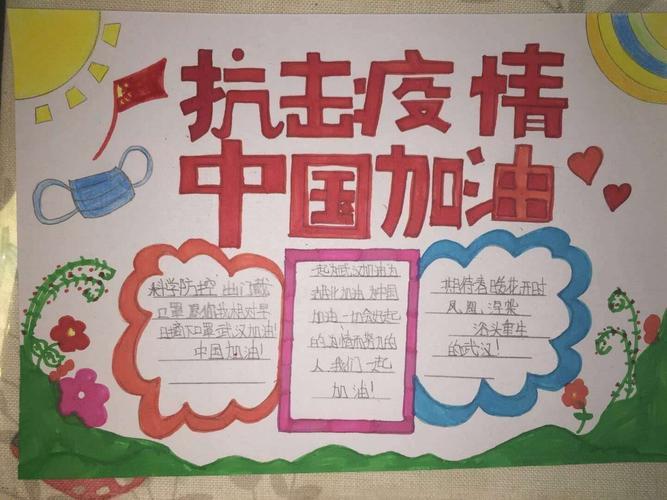 抗击疫情
中国加油
科学防控 出门戴
口罩 愿你我相对早
日摘下口罩 武汉加油!
中国加油!
一起为武汉加油为
湖北加油 为中国
加油一切会好起
的 情而努力的
人 我们一起
加油!
期待春 花开时
凤凰 涅槃
浴 重生
的武汉!